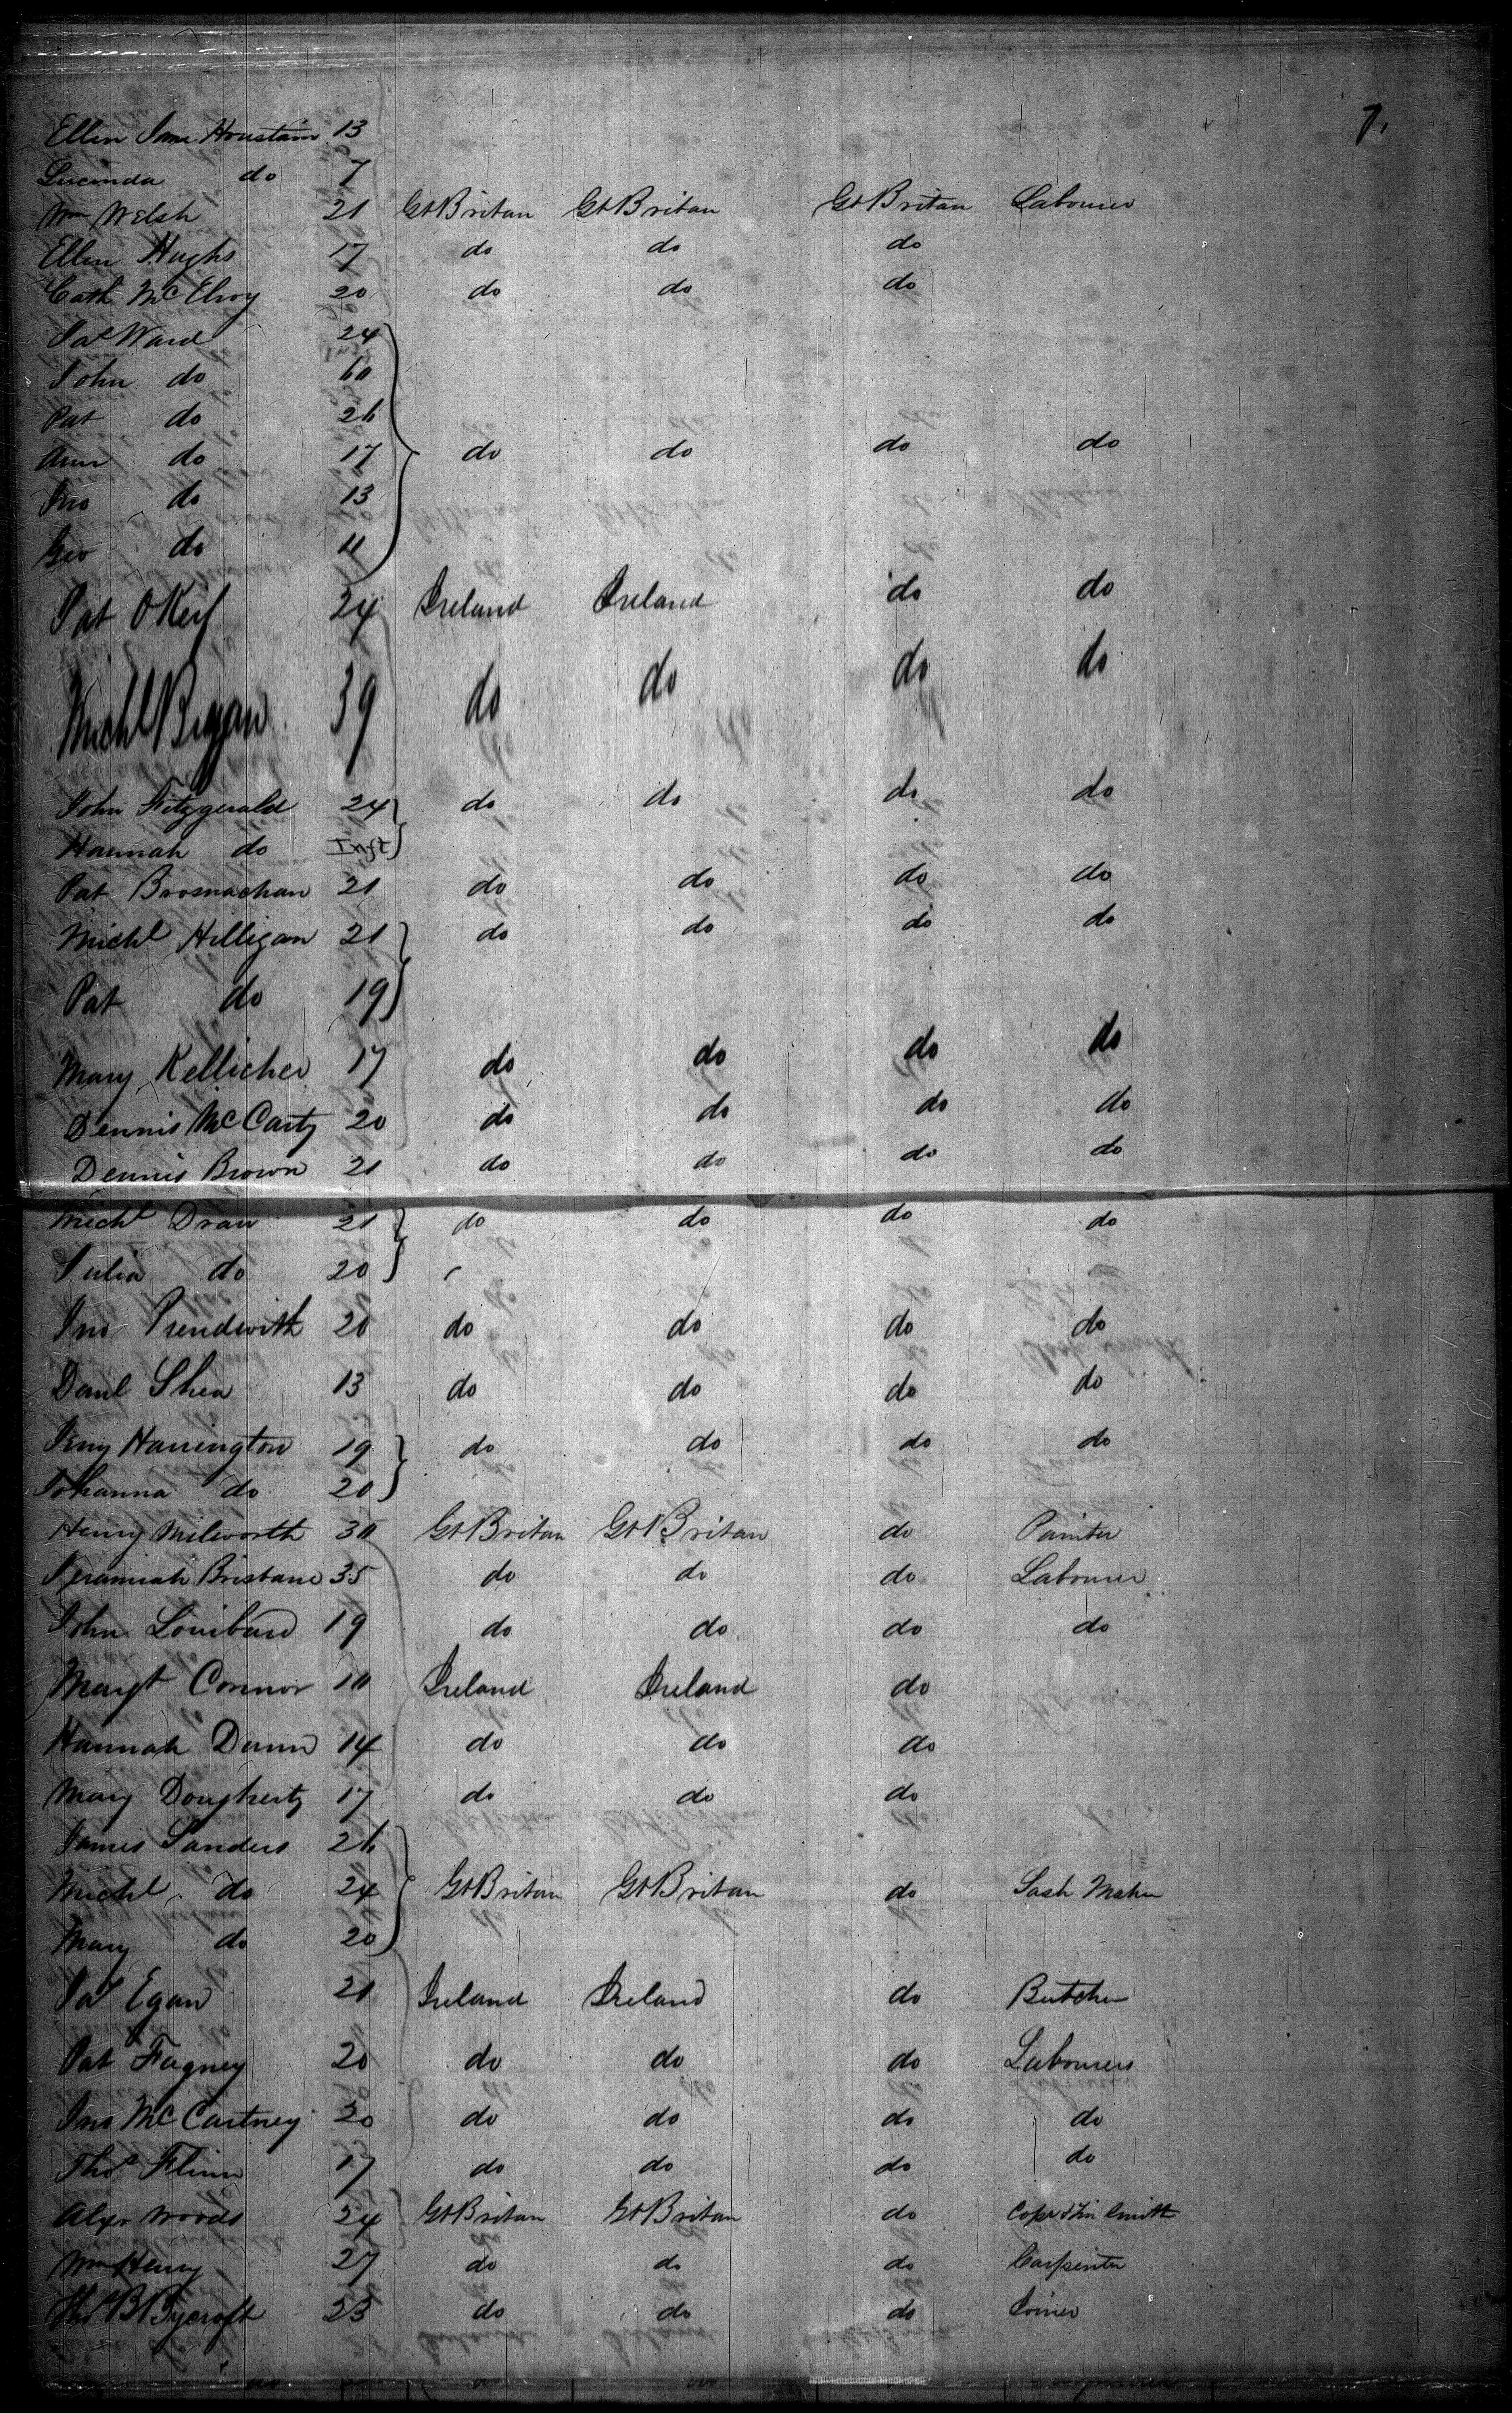 7.
Ellen Jane Houstain 13
Lucinda do 7
Wm Welsh 21 Gt Britan Gt Britan Gt Britan Labourer
Ellen Hughs 17 do do do
Cath McElroy 20 do do do
Pat Ward 24
John do 60
Pat do 26
Ann do 17 do do do do
Jno do 13
Geo do 11
Pat OKeif 24 Ireland Ireland do do
Michl Beggan 39 do do do do
John Fitzgerald 24 do do do do
Hannah do Inft
Pat Brosnachan 21 do do do do
Michl Hilligan 21 do do do do
Pat do 19
Mary Kellicher 17 do do do do
Dennis McCarty 20 do do do do
Dennis Brown 21 do do do do
Michl Dran 21 do do do do
Julia do 20
Jno Prendwith 20 do do do do
Danl Shea 13 do do do do
Jerry Harrington 19 do do do do
Johanna do 20
Henry Milworth 30 Gt Britan Gt Britan do Painter
Jeramiah Brisbane 35 do do do Labourer
John Lombard 19 do do do do
Margt Connor 10 Ireland Ireland do
Hannah Dunn 14 do do do
Mary Dougherty 17 do do do
James Sanders 26
Michl do 24 Gt Britan Gt Britan do Sash Maker
Mary do 20
Pat Egan 21 Ireland Ireland do Butcher
Pat Fagney 20 do do do Labourers
Jno McCartney 20 do do do do
Thos Flinn 17 do do do do
Alexr Woods 24 Gt Britan Gt Britan do Copr & Tin Smith
Wm Henry 27 do do do Carpenter
Thos B Bycroft 23 do do do Joiner